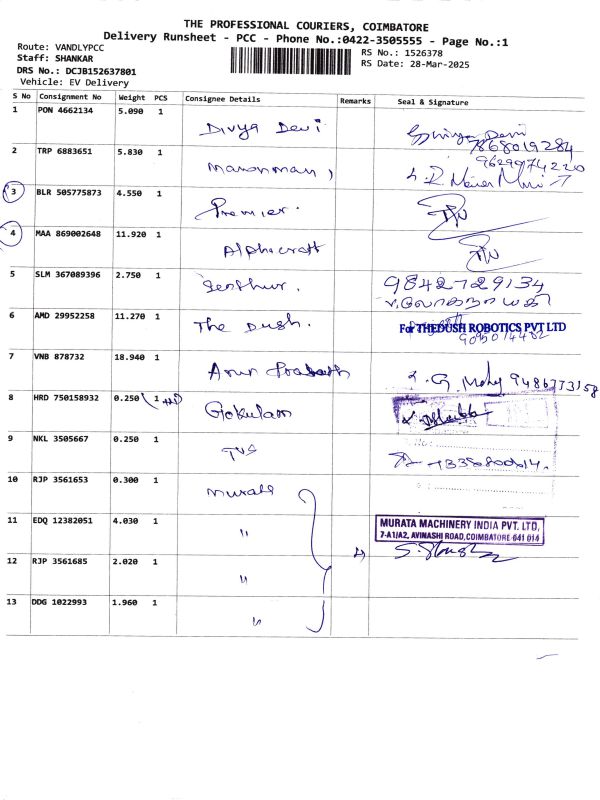 THE PROFESSIONAL COURIERS, COIMBATORE
Delivery Runsheet - PCC - Phone No.:0422-3505555 - Page No.:1
Route: VANDLYPCC
RS No.: 1526378
Staff: SHANKAR
RS Date: 28-Mar-2025
DRS No.: DCJB152637801
Vehicle: EV Delivery
S No Consignment No Weight PCS Consignee Details Remarks Seal & Signature
1 PON 4662134 5.090 1 Divya Devi
7868019284
2 TRP 6883651 5.830 1 Manonmani
9629974220
3 BLR 505775873 4.550 1 Premier.
4 MAA 869002648 11.920 1 Alphacraft
5 SLM 367089396 2.750 1 Senthur. 9842729134
6 AMD 29952258 11.270 1 The Dush. For THEDUSH ROBOTICS PVT LTD
7 VNB 878732 18.940 1 Arun Prasath
8 HRD 750158932 0.250 1 Gokulam
9 NKL 3505667 0.250 1 TVS
10 RJP 3561653 0.300 1 Murata
11 EDQ 12382051 4.030 1 "
MURATA MACHINERY INDIA PVT. LTD,
7-A1/A2, AVINASHI ROAD, COIMBATORE-641 014
12 RJP 3561685 2.020 1 "
13 DDG 1022993 1.960 1 "